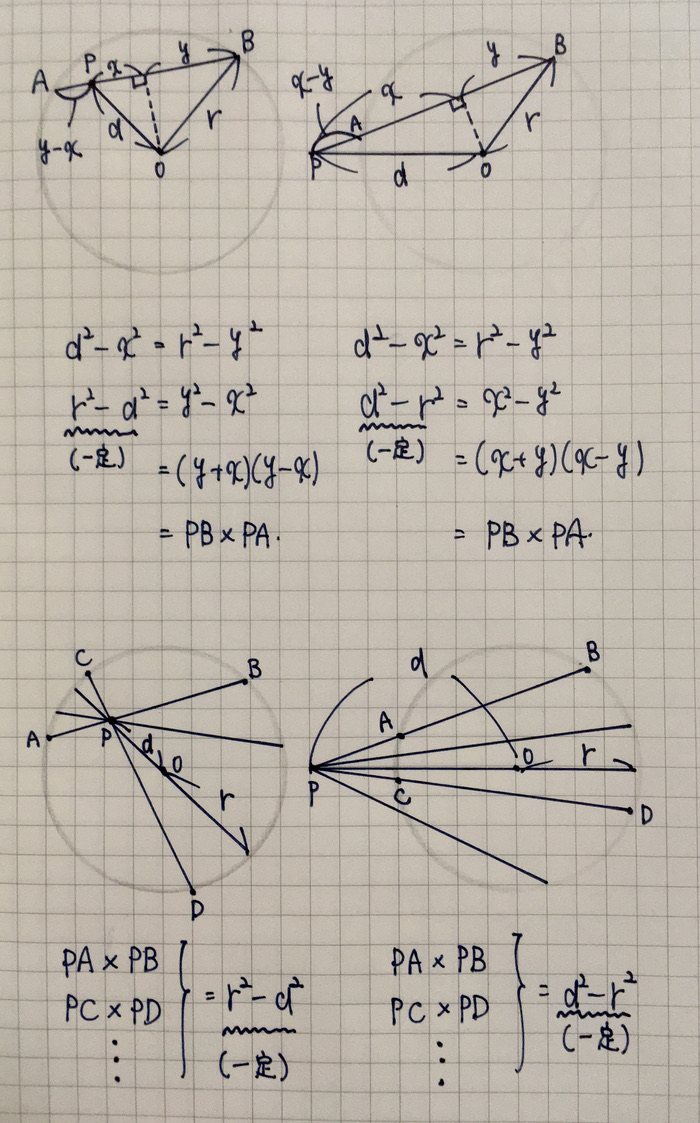 A P x y B
y-x d r
O
x-y x y B
A r
P d O
d²-x² = r²-y²
r²-d² = y²-x²
(一定)
=(y+x)(y-x)
= PB×PA.
d²-x² = r²-y²
d²-r² = x²-y²
(一定)
=(x+y)(x-y)
= PB×PA.
C
B
A P d O
r
D
d B
A
O r
P C
D
PA×PB
PC×PD
⋮
= r²-d²
(一定)
PA×PB
PC×PD
⋮
= d²-r²
(一定)